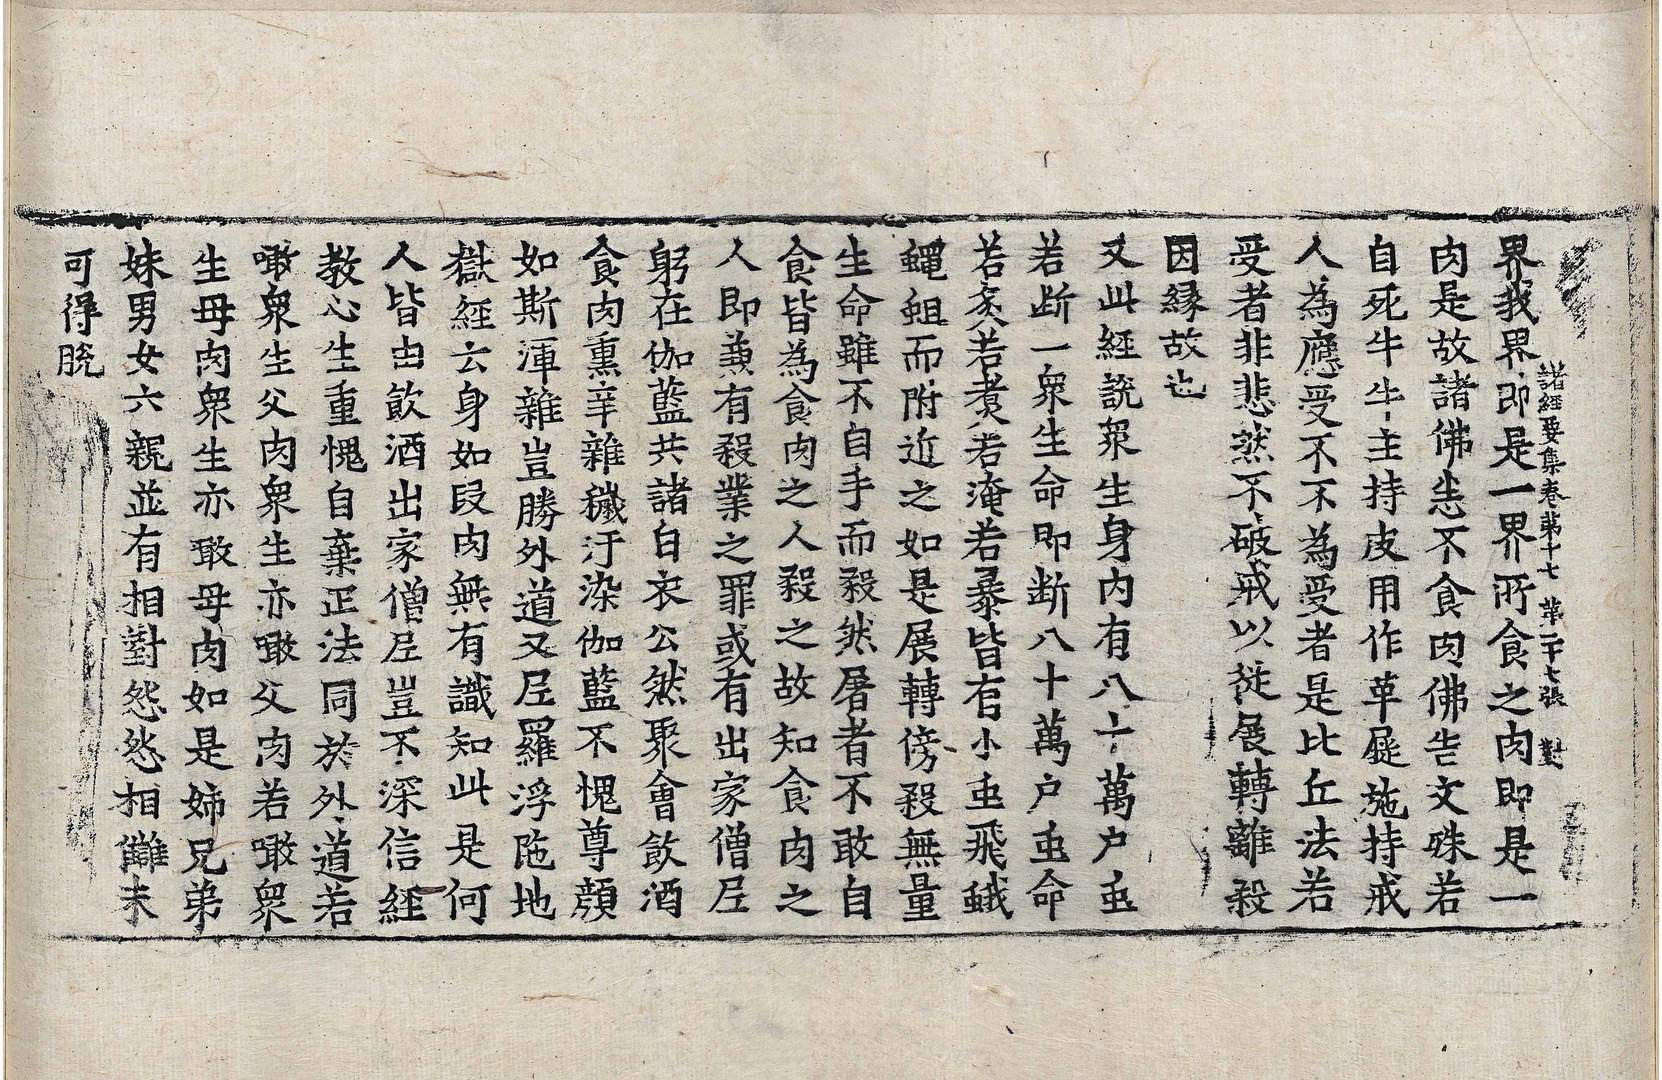 界我界即是一界所食之肉即是一
諸經要集卷第十七 第二十七張 對
肉是故諸佛悉不食肉佛告文殊若
自死牛牛主持皮用作革屣施持戒
人為應受不不為受者是比丘法若
受者非悲然不破戒以從展轉離殺
因緣故也
又此經説衆生身內有八十萬户䖝
若斷一衆生命即斷八十萬户䖝命
若炙若煑若淹若暴皆有小䖝飛蛾
蠅蛆而附近之如是展轉傍殺無量
生命雖不自手而殺然屠者不敢自
食皆為食肉之人殺之故知食肉之
人即兼有殺業之罪或有出家僧尼
躬在伽藍共諸白衣公然聚會飲酒
食肉熏辛雜穢汙染伽藍不愧尊顔
如斯渾雜豈勝外道又尼羅浮陁地
獄經云身如段肉無有識知此是何
人皆由飲酒出家僧尼豈不深信經
教心生重愧自棄正法同於外道若
噉衆生父肉衆生亦噉父肉若噉衆
生母肉衆生亦噉母肉如是姉兄弟
妹男女六親並有相對怨怨相讎未
可得脫